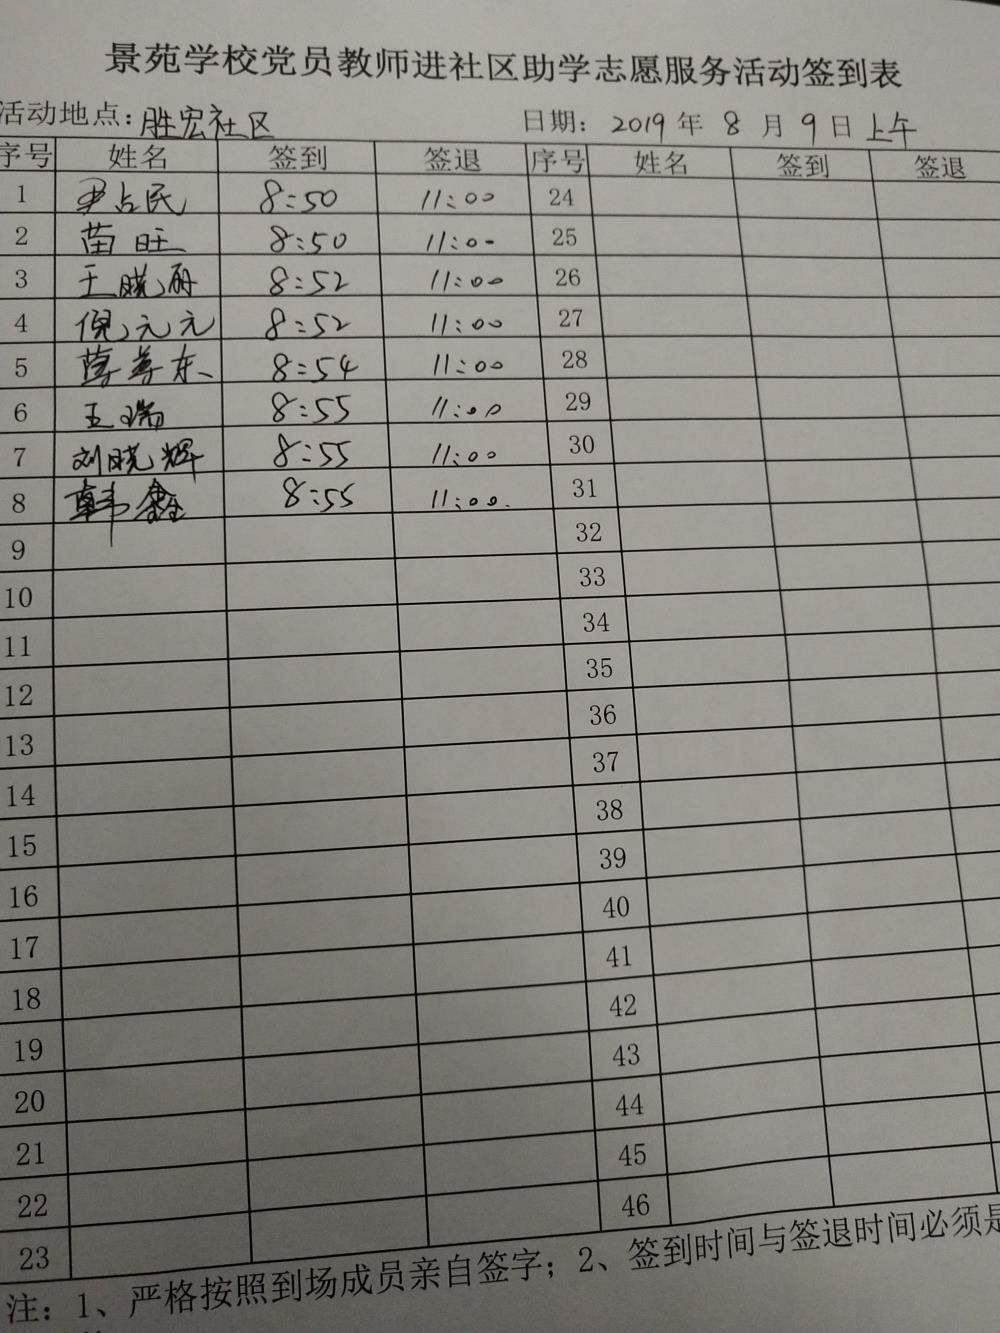 景苑学校党员教师进社区助学志愿服务活动签到表
活动地点：胜宏社区 日期： 2019 年 8 月 9 日 上午
序号 姓名 签到 签退 序号 姓名 签到 签退
1 尹占民 8:50 11:00 24
2 苗旺 8:50 11:00 25
3 王晓丽 8:52 11:00 26
4 倪元元 8:52 11:00 27
5 薛尊东 8:54 11:00 28
6 王瑞 8:55 11:00 29
7 刘晓辉 8:55 11:00 30
8 韩鑫 8:55 11:00. 31
9 32
10 33
11 34
12 35
13 36
14 37
15 38
16 39
17 40
18 41
19 42
20 43
21 44
22 45
23 46
注：1、严格按照到场成员亲自签字；2、签到时间与签退时间必须是